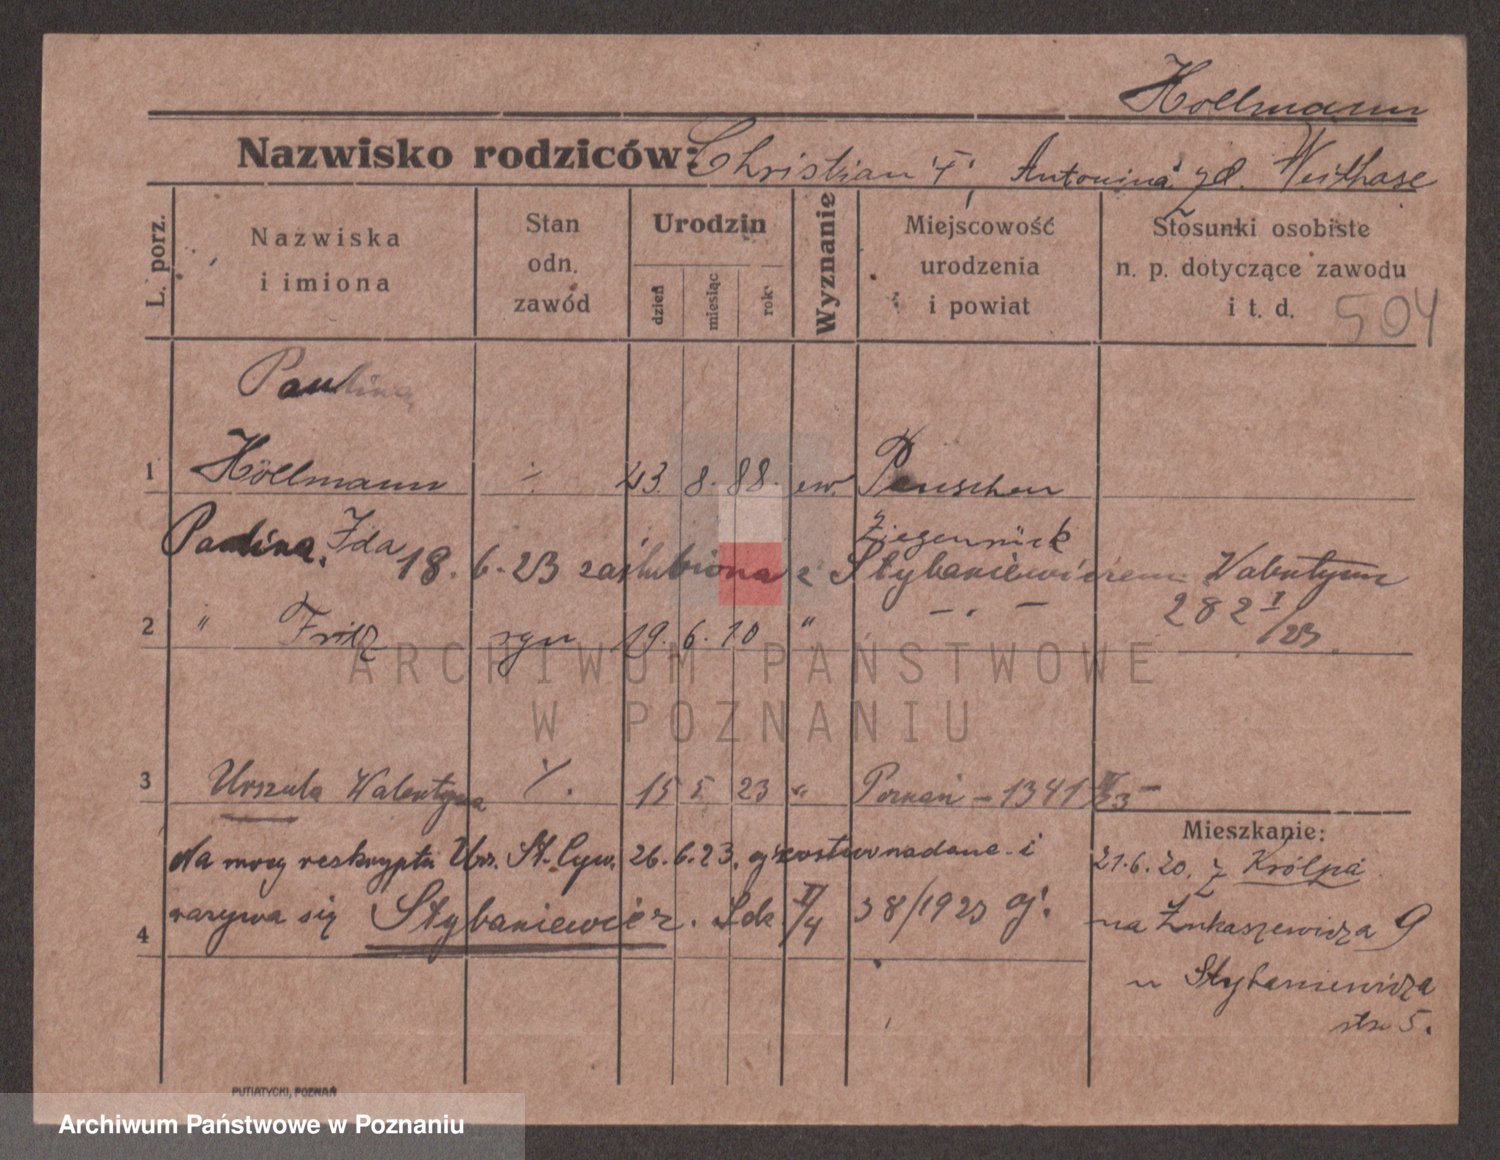 Hollmann
Nazwisko rodziców: Christian i Antonina zd. Weithase
L. porz.
Nazwiska
i imiona
Stan
odn.
zawód
Urodzin
dzień
miesiąc
rok
Wyznanie
Miejscowość
urodzenia
i powiat
Stosunki osobiste
n. p. dotyczące zawodu
i t. d.
504
Paulina
1 Höllmann ·/. 23. 8. 88. ew.
Paulina, Ida Ziegenrück
18. 6. 23 zaślubiona z Stybaniewiczem Walentym
282 I/23
2 " Fritz syn 19. 6. 10 " - " -
3 Urszula Walentyna ·/. 15 5 23 " Poznań - 1341
Mieszkanie:
Na mocy reskryptu Urz. St. Cyw. 26. 6. 23. nadane i
21. 6. 20. z Królpa
nazywa się Stybaniewicz. 38/1923
4
na Łukaszewicza 9
u Stybaniewicza
PUTIATYCKI, POZNAŃ
ARCHIWUM PAŃSTWOWE
W POZNANIU
Archiwum Państwowe w Poznaniu